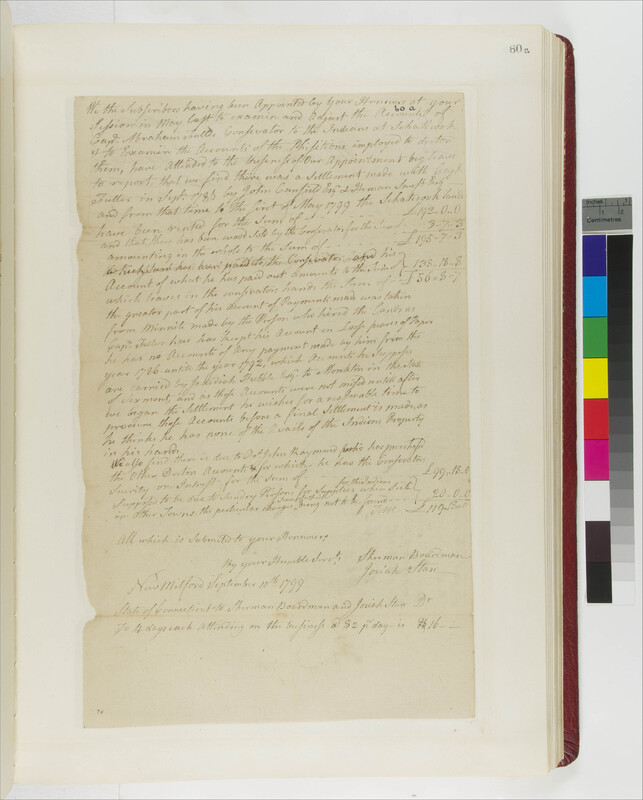 60a
We the Subscribers having been Appointed by Your Honours at your
60 a
Session in May last to examin and Adjust the Accounts of
Capt. Abraham Fuller Conservator to the Indians at Schaticook
& to Examin the Accounts of the Phisitions imployed to doctor
them, have attended to the business of Our Appointment beg leave
to report, that we find there was a Settlement made with Capt
Fuller in Sept. 1786 by John Canfield Esqr &
and from that time to the first of May 1799 the Schaticook lands
have been rented for the Sum of £192-0-0
and that there has been wood Sold by the Conservator for the Sum of 3-7-3
amounting in the whole to the Sum of £195-7-3
which Sum has been paid to the Conservator and his
Account of what he has paid out amounts to the Sum of 138-18-8
which leaves in the conservators hands the Sum of £56-8-7
the greater part of his Account of Payments made was taken
from Minnits made by the Persons who hired the Lands as
Capt. Fuller has kept his Account in Loose pieces of Paper
he has no Accounts of Any payment made by him from the
year 1786 untill the year 1792, which Accounts he Suppose
are carried by Jedidiah Hubble Esqr. to in the State
of Vermont and as those Accounts were not missed untill after
we began the Settlement he wishes for a resonable time to
procure those Accounts before a final Settlement is made, as
he thinks he has none of the Avails of the Indians Property
in his hands
We also find there is due to Doct. John Raymond who has purchased
the Other Doctors Accounts & for which he has the Conservators
Surity on Intrest for the Sum of £99-18-0
for the Indians
Suppose to be due to Sundry Persons for Supplies when Sick
in Other Towns, the particular charges being not to be found 20-0-0
Total £119-18-0
All which is Submitted to your Honours
By your Humble Servts. Sherman Boardman
Josiah Starr
New Milford September 10th, 1799
State of Connecticut to Sherman Boardman and Josiah Starr Dr
To 4 days each attending on the business a $2 pr day is $16—